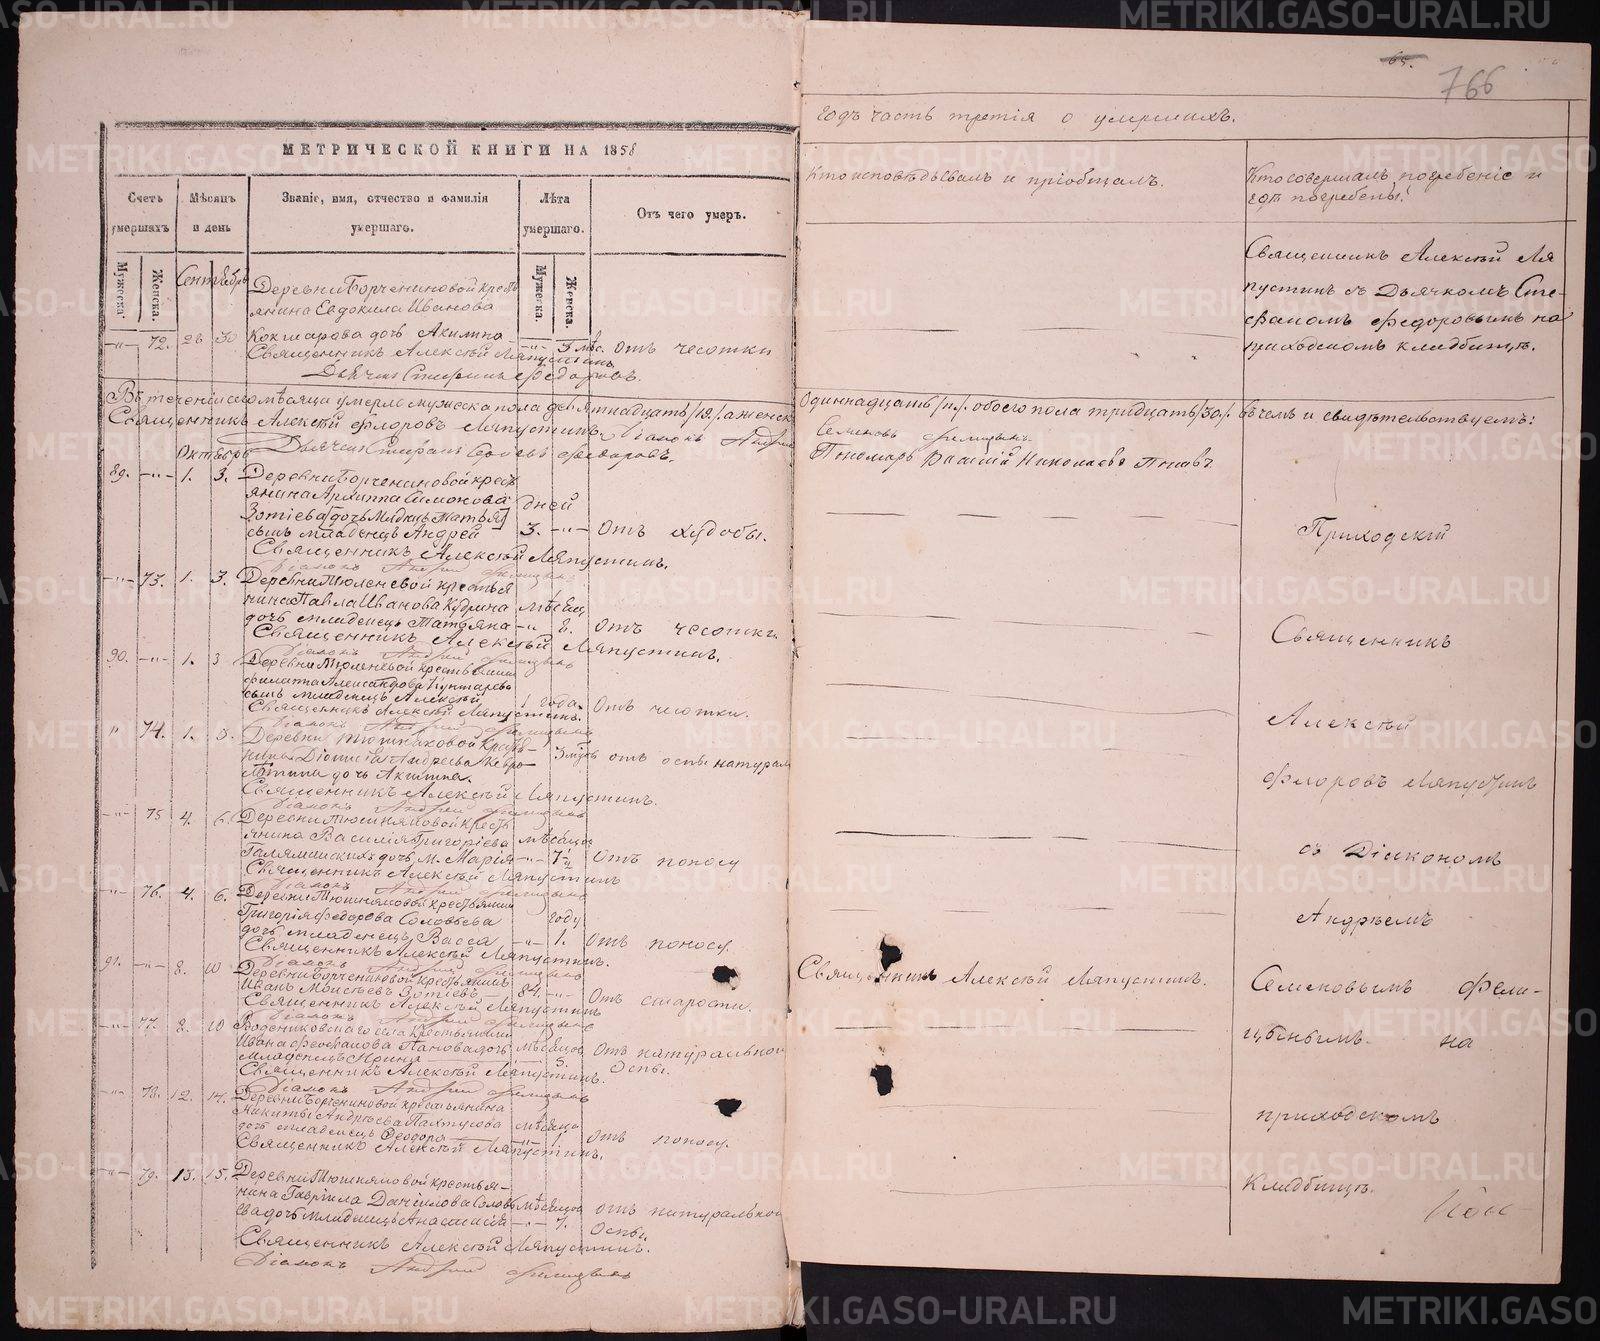 МЕТРИЧЕСКОЙ КНИГИ НА 1858
Счетъ умершихъ
Мѣсяцъ и день
Званіе, имя, отчество и фамилія умершаго.
Лѣта умершаго.
Отъ чего умеръ.
Мужеска.
Женска.
Мужеска.
Женска.
Сентябрь
Деревни Борчениновой кресть
янина Евдокила Иванова
Кокшарова дочь Акилина
-„- 72. 28 30 -„- 3 мѣс. Отъ чесотки
Священникъ Алексѣй Ляпустинъ
Дьячекъ Стефанъ Федоровъ.
Въ теченіи сего мѣсяца умерло мужеска пола девятнадцать /19./ а женска
Священникъ Алексѣй Флоровъ Ляпустинъ. Діаконъ Андрей
Дьячекъ Стефанъ Федоровъ.
Октябрь
89. -„- 1. 3. Деревни Борчениновой кресть
янина Архиппа Симонова
Зотіева
сынъ младенецъ Андрей
дней 3. -„- Отъ худобы.
Священникъ Алексѣй Ляпустинъ.
Діаконъ Андрей
-„- 73. 1. 3. Деревни Тюленевой крестья
нина Павла Иванова Кудрина
дочь младенецъ Татьяна
мѣсяц -„- 8. Отъ чесотки.
Священникъ Алексѣй Ляпустинъ.
Діаконъ Андрей
90. -„- 1. 3 Деревни Тюленевой крестьянина
Филата Александрова
сынъ младенецъ Алексѣй
1 года. Отъ чесотки.
Священникъ Алексѣй Ляпустинъ.
Діаконъ Андрей
„ 74. 1. 3. Деревни Тюшняковой кресть-
Андреева
дочь Акилина.
3 отъ оспы натурал
Священникъ Алексѣй Ляпустинъ.
Діаконъ Андрей
-„- 75 4. 6. Деревни Тюшняковой кресть
янина Василія Григоріева
дочь м. Марія
мѣсяцов -„- 7½ Отъ поносу
Священникъ Алексѣй Ляпустинъ
Діаконъ Андрей
-„- 76. 4. 6. Деревни Тюшняковой крестьянина
Григорія Федорова Соловьева
дочь младенецъ Васса
году -„- 1. Отъ поносу.
Священникъ Алексѣй Ляпустинъ.
Діаконъ Андрей
91. -„- 8. 10 Деревни Борчениновой крестьянинъ
Иванъ Моисеевъ Зотіевъ
84. -„- Отъ старости.
Священникъ Алексѣй Ляпустинъ
Діаконъ Андрей
-„- 77. 8. 10 села крестьянина
Ивана Феофанова Панова дочь
младенецъ Ирина
мѣсяцов 5. Отъ натуральной
Оспы.
Священникъ Алексѣй Ляпустинъ.
Діаконъ Андрей
-„- 78. 12. 14. Деревни Борчениновой крестьянина
Никиты Андреева Пахтусова
дочь младенецъ Феодора
мѣсяцо -„- 1. Отъ поносу.
Священникъ Алексѣй Ляпустинъ.
-„- 79. 13. 15. Деревни Тюшняковой крестья-
нина Гавріила Даніилова Соловь
ева дочь младенецъ Анастасія
мѣсяцов -„- 7. отъ натуральной
Оспы.
Священникъ Алексѣй Ляпустинъ.
Діаконъ Андрей
65.
766
годъ часть третія о умершихъ.
Кто исповѣдывалъ и пріобщалъ.
Кто совершалъ погребеніе и
гдѣ погребены?
Священникъ Алексѣй Ля
пустинъ съ Дьячкомъ Сте-
фаномъ Федоровымъ на
приходскомъ кладбищѣ.
Одиннадцать /11./ обоего пола тридцать /30./ въ чемъ и свидѣтельствуемъ:
Семеновъ Фелицынъ.
Пономарь Василій Николаевъ Поповъ
Приходскій
Священникъ
Алексѣй
Флоровъ Ляпустинъ
съ Діакономъ
Андреемъ
Священникъ Алексѣй Ляпустинъ.
Семеновымъ Фели-
цынымъ на
приходскомъ
кладбищѣ.
METRIKI.GASO-URAL.RU